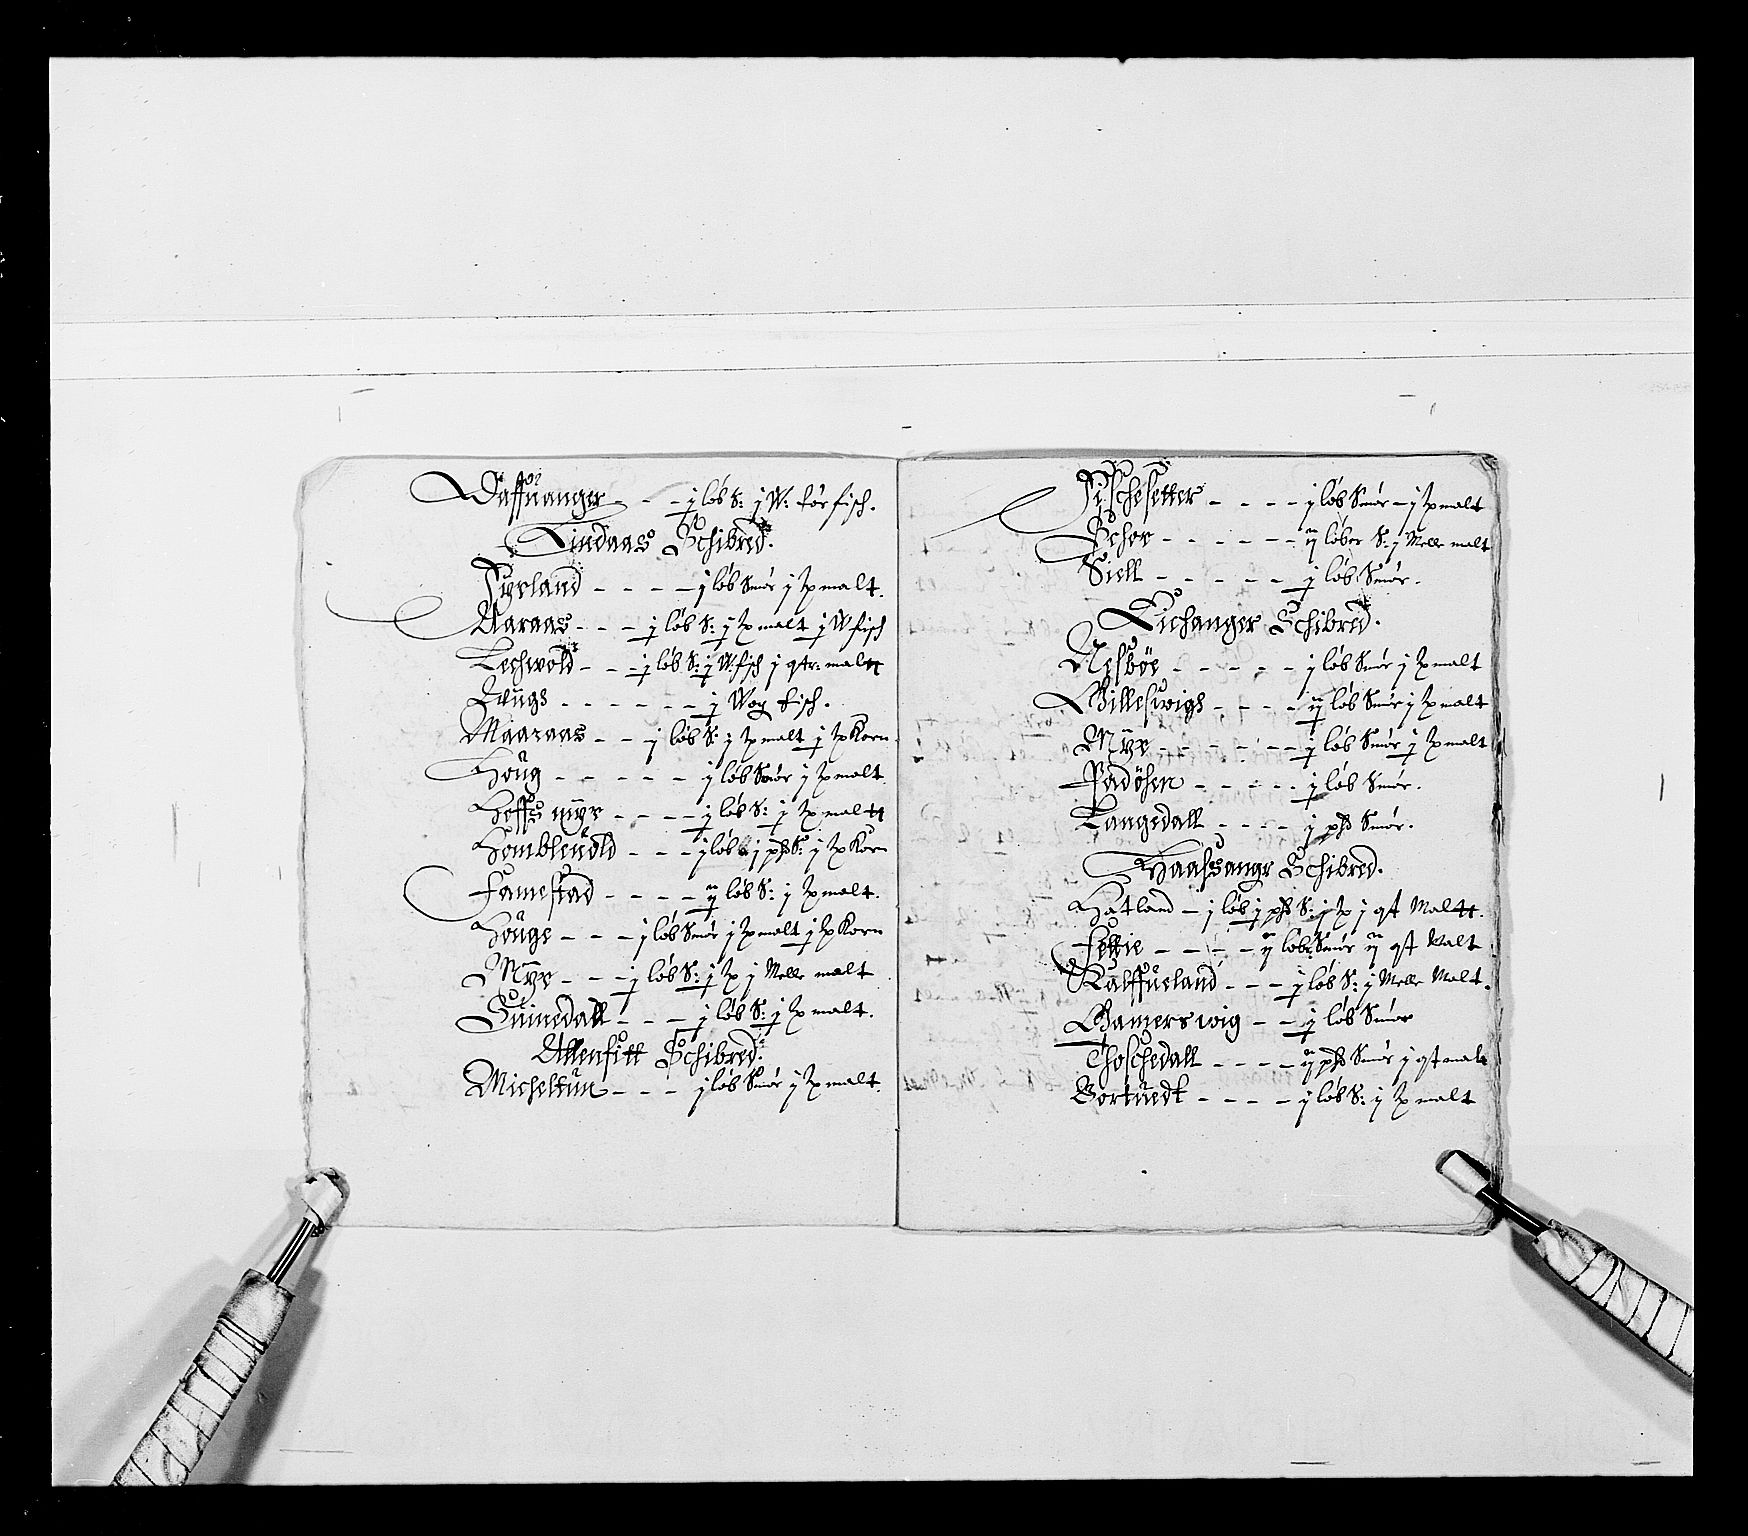 Daffuanger - - - j løb S: j W: tør fisch.
Lindaas Schibred.
Fyrland - - - - j løb Smør j Xp malt.
Aaraas - - - j løb S: j Xp malt j W fisch
Lechwold - - - j løb S: j W: fisch j qtr: maltt
Langs - - - - - - j Wog fisch.
Maaraas - - j løb S: j Xp malt j Xp Korn
Houg - - - - - j løb Smør j Xp malt
Hoffs myr - - - - j løb S: j Xp maltt
Homblenold - - - j løb j phd S: j Xp Korn
Famestad - - - - ij løb S: j Xp malt.
Houge - - - j løb Smør j Xp malt j Xp Korn
Myr - - - j løb S: j Xp j Melle malt
Suinedall - - - j løb S: j Xp malt.
Allenfitt Schibred.
Micheltun - - - j løb Smør j Xp malt.
Fischesetter - - - - j løb Smør - j Xp malt
Schor - - - - - - ij løber S: j Melle malt
Siell - - - - - j løb Smør.
Eichanger Schibred.
Nesbøe - - - - - j løb Smør j Xp malt
Billeswigs - - - - ij løb Smør j Xp malt
Myr - - - - - - j løb Smør j Xp malt
Padøsen - - - - - j løb Smør.
Langedall - - - - j phd Smør.
Haassangr Schibred.
Hatland - j løb j phd S: j Xp j qt Maltt.
Fettie - - - - - ij løb: Smør ij qt Malt
Kalffueland - - - j løb S: j Melle Malt.
Bamerswig - - j løb Smør
Thoschedall - - - - ij phd Smør j qt malt
Bortuedt - - - - j løb S: j Xp malt